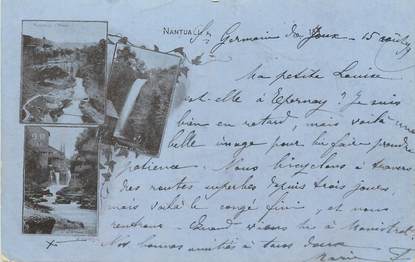 NANTUA
St Germain de Joux - 15 août
Ma petite Louise
est-elle à Epernay ? Je suis
bien en retard, mais voilà une
belle image pour lui faire prendre
patience. Nous bicyclons à travers
des routes superbes depuis trois jours
mais voilà le congé fini, et nous
rentrons. Quand viens tu à Monistrol
Nos bonnes amitiés à tous deux
Marie